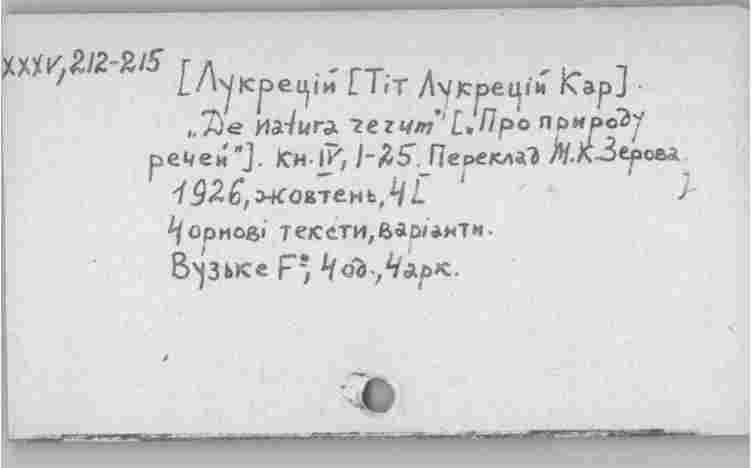 XXXV, 212-215
[Лукрецій [Тіт Лукрецій Кар].
„De natura rerum" [„Про природу
речей"]. кн. IV, 1-25. Переклад М.К.Зерова.
1926, жовтень, 4[ ]
Чорнові тексти, варіанти.
Вузьке F°, 4 од., 4 арк.